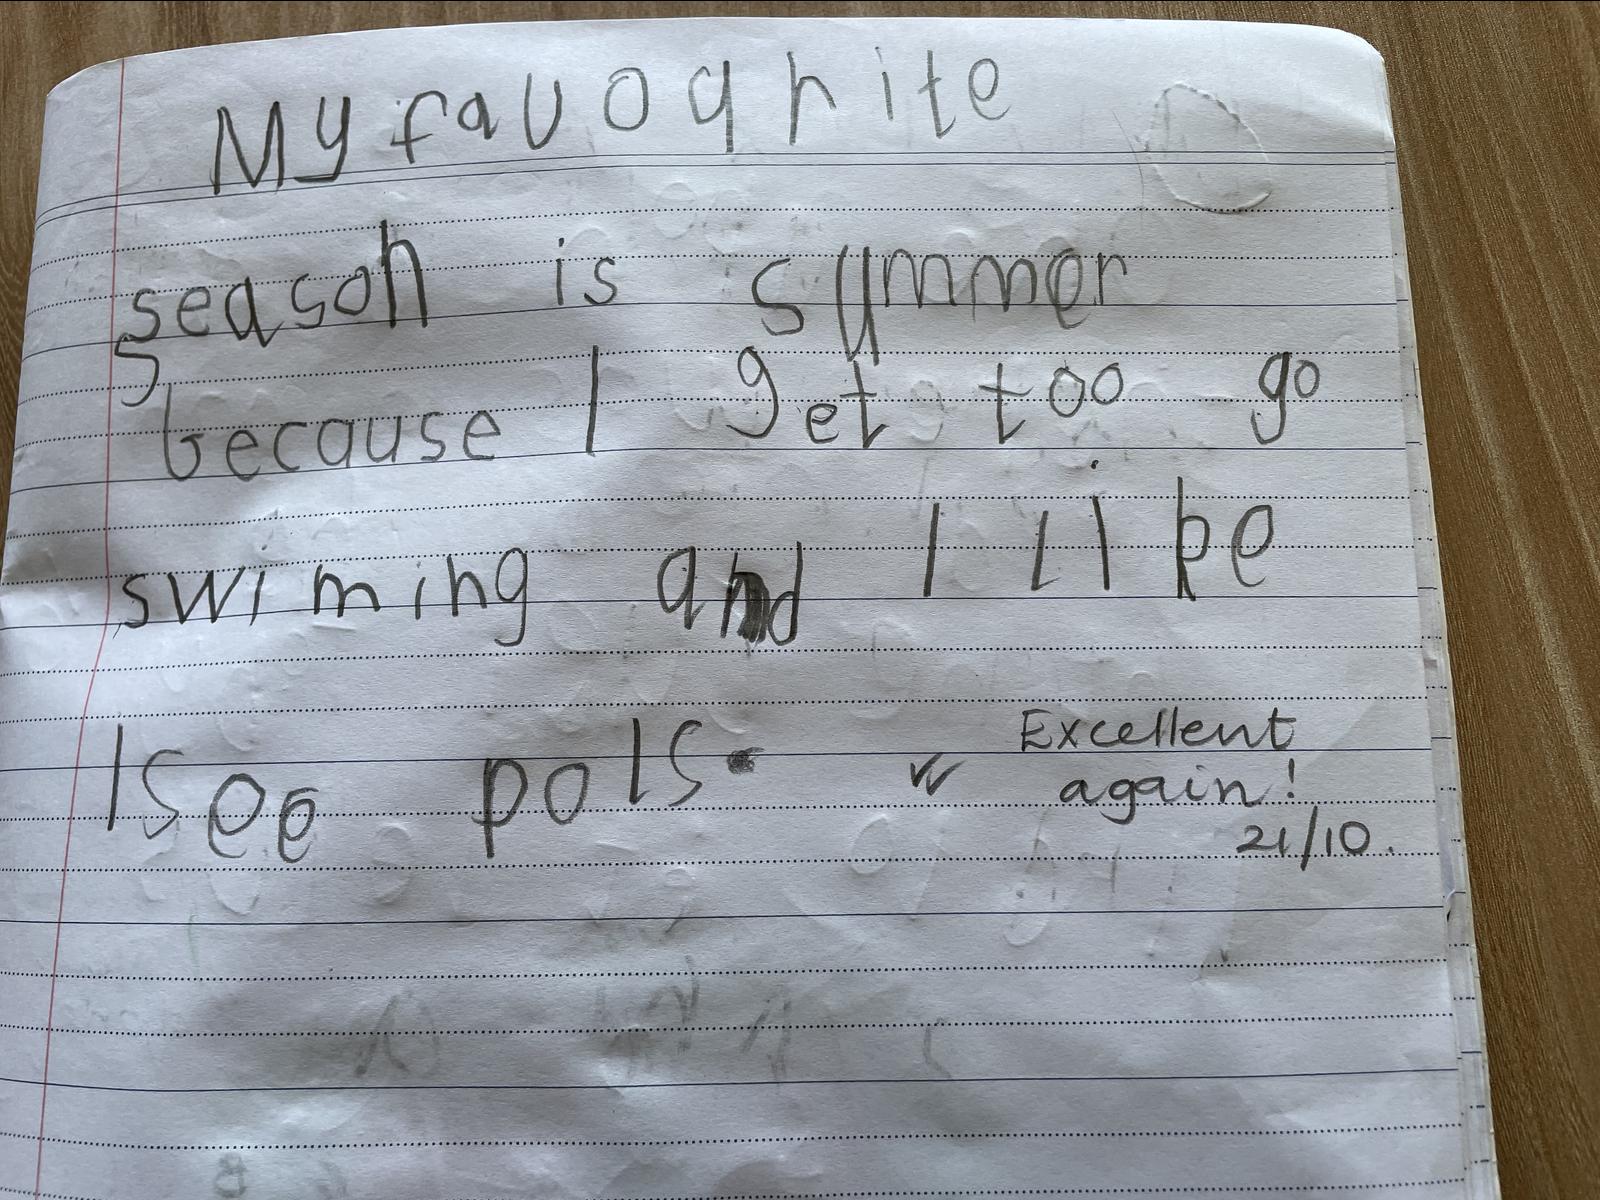 My favoqrite
season is summer
because I get too go
swiming and I like
I see pols.
Excellent
again!
21/10.